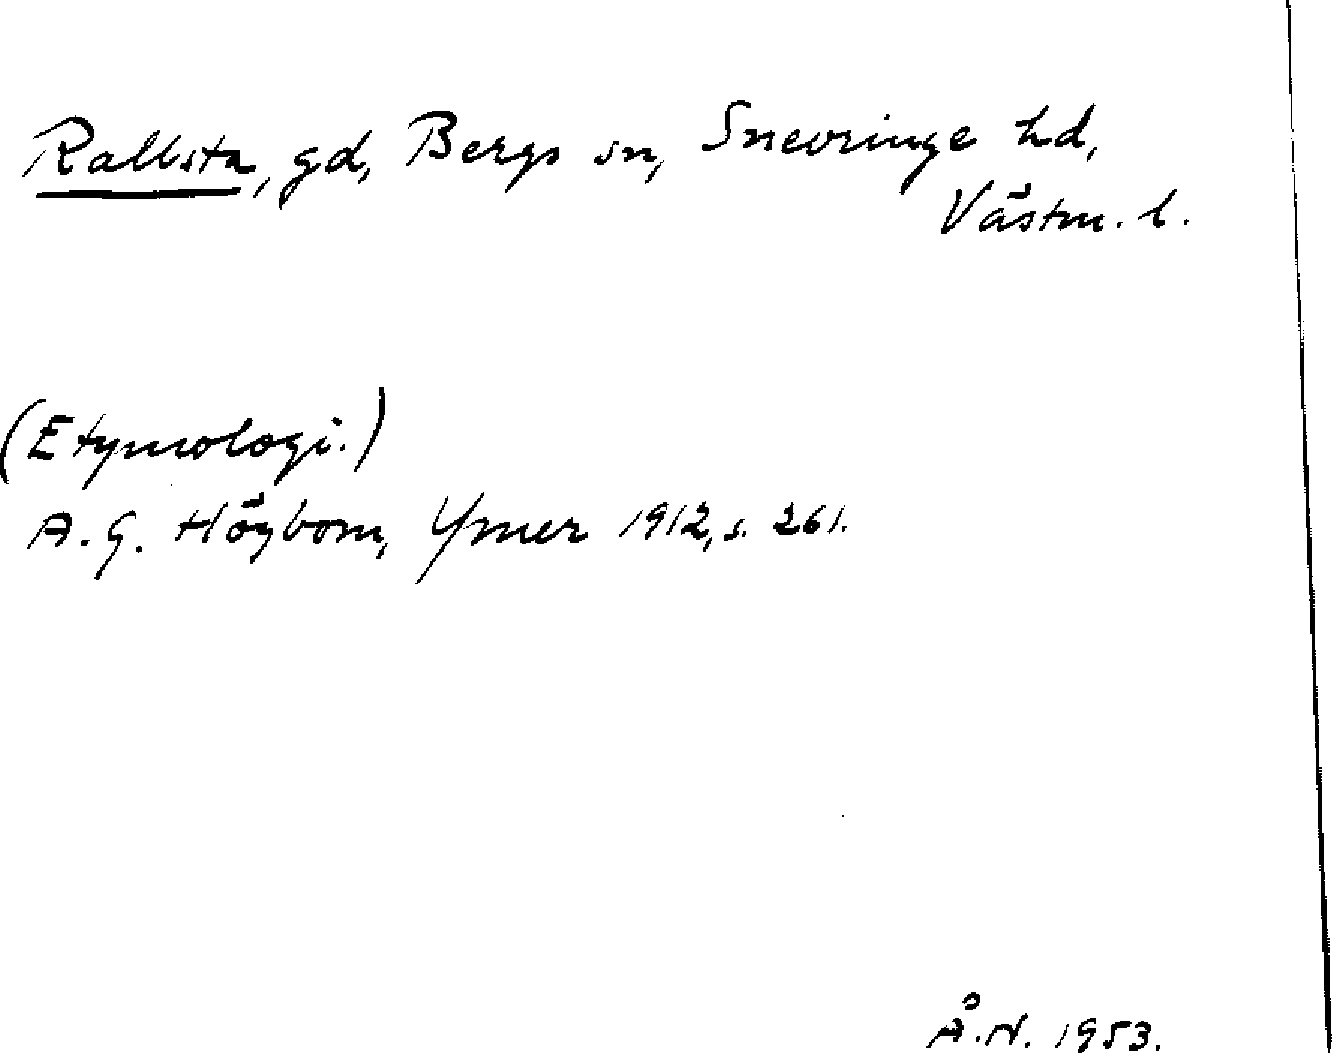 Rallsta, gd, Bergs sn, Snevringe hd,
Västm. l.
(Etymologi.)
A. G. Högbom, Ymer 1912, s. 261.
Å. N. 1953.